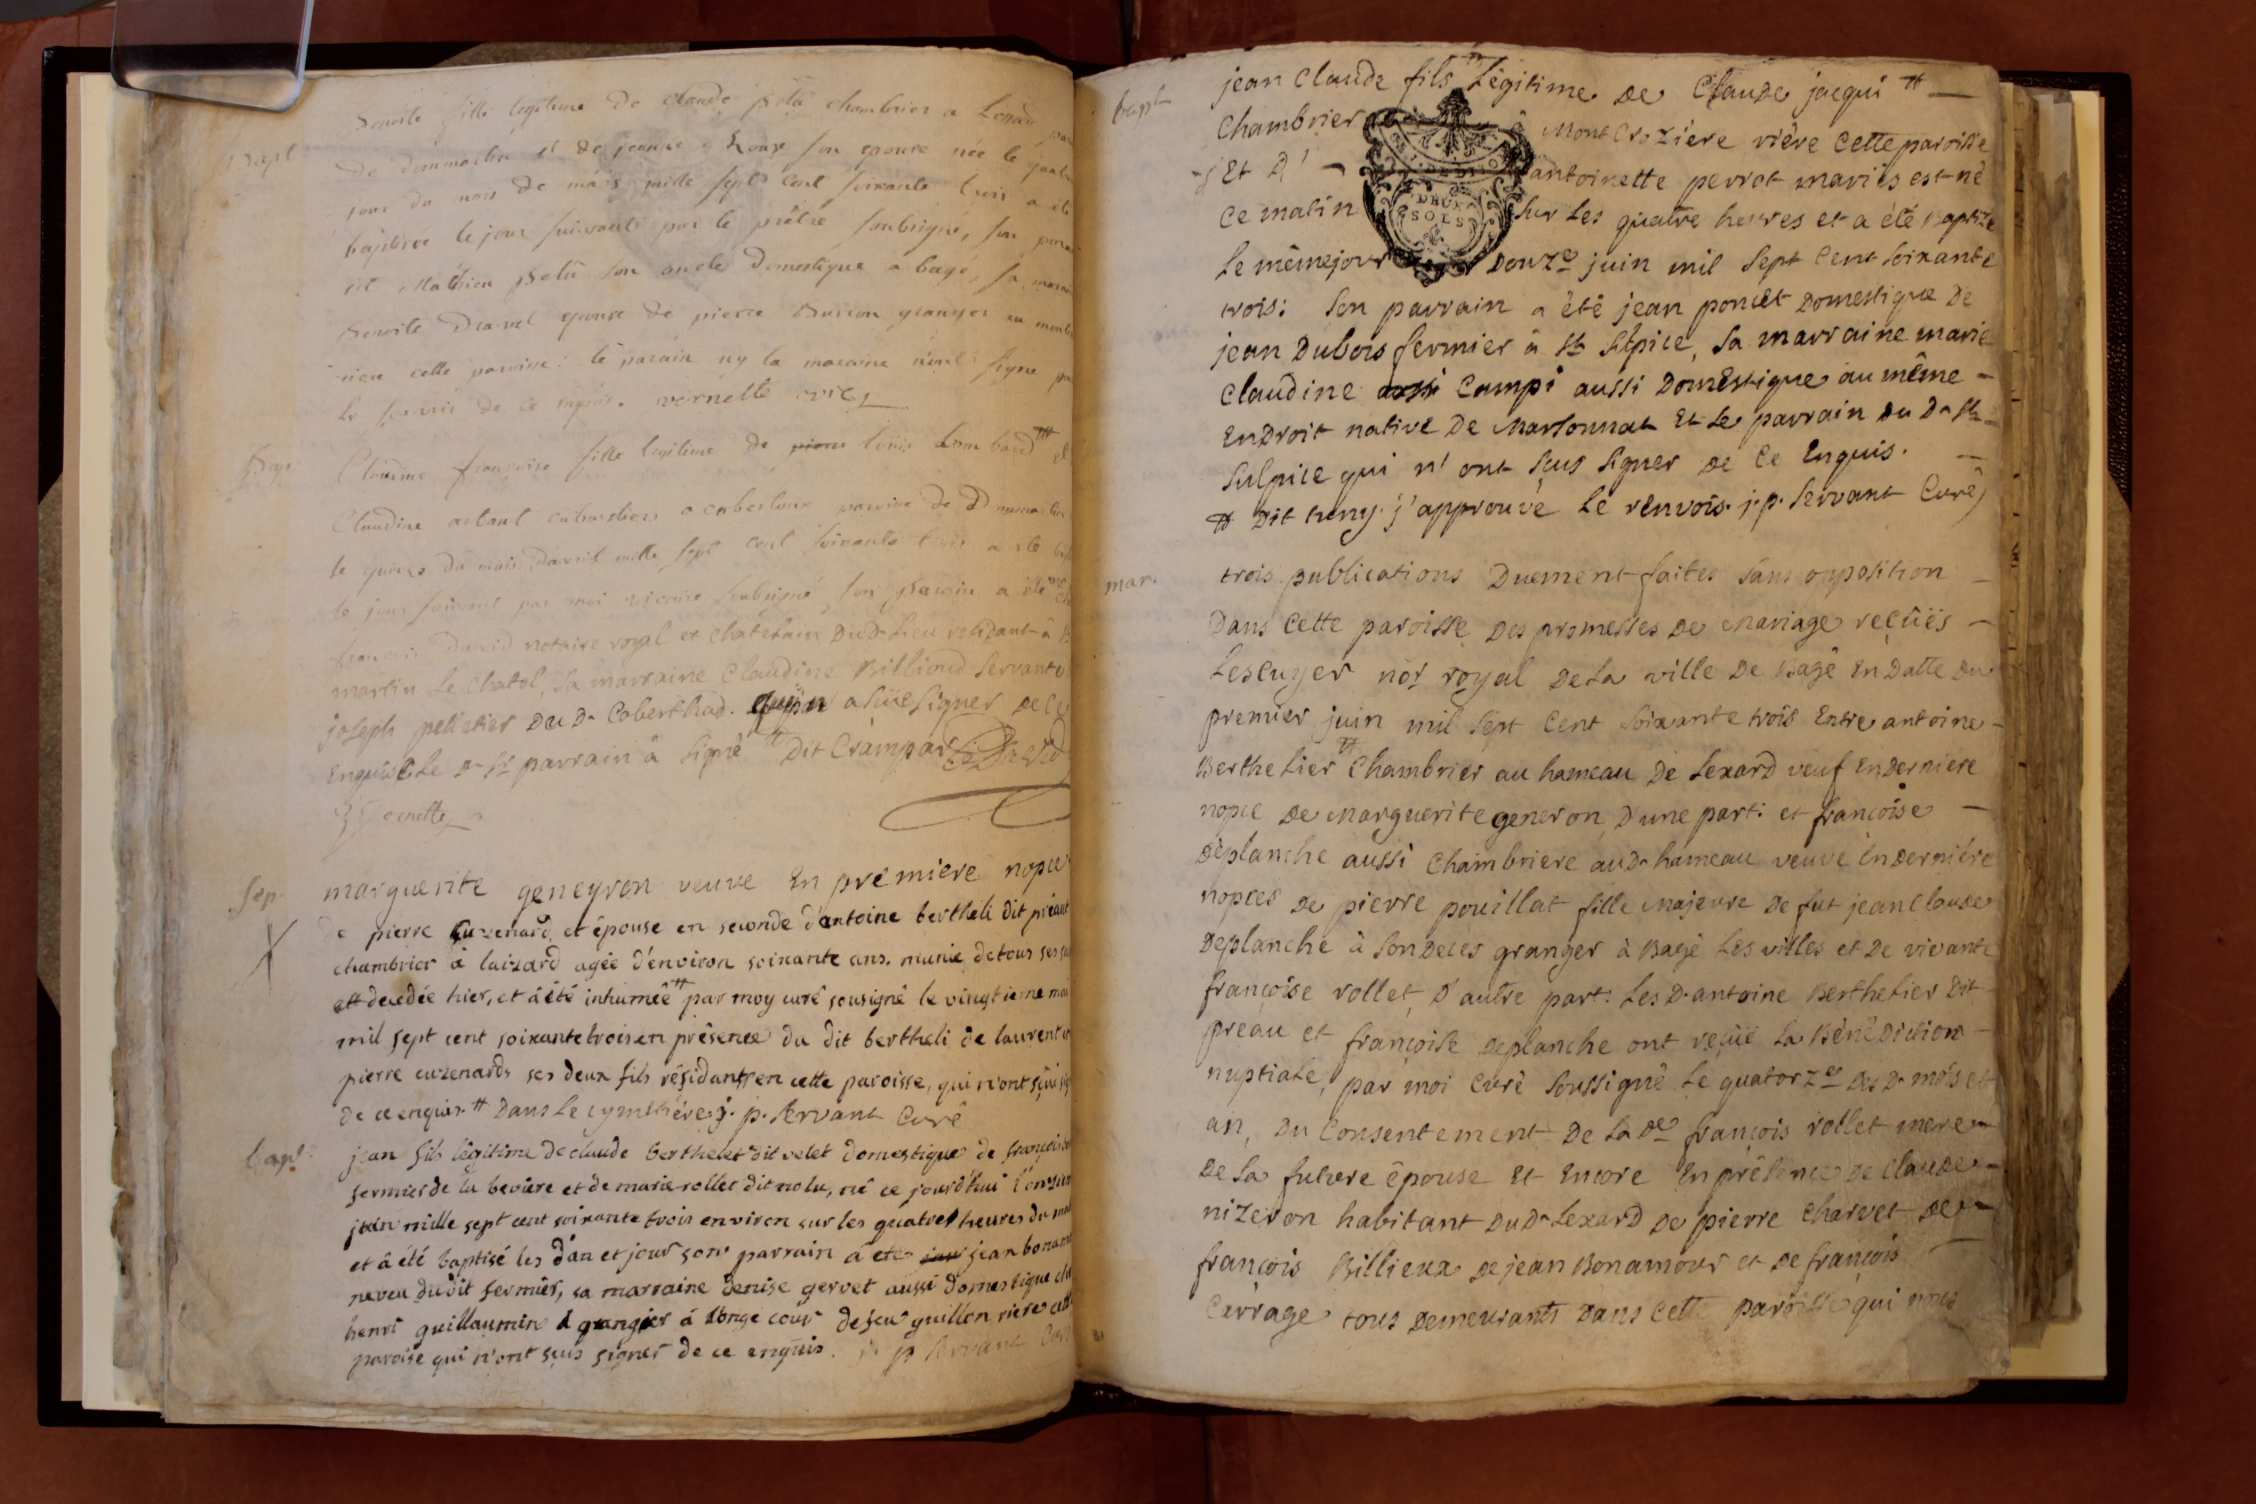 Bapt
Benoite fille legitime de claude petit chambrier a Lenard
de dommartin et de jeanne son epouse née le
jour du mois de mars mille sept cent soixante trois a été
baptisée le jour suivant par le prêtre soubsigné, son
été Mathieu petit son oncle domestique a bagé, sa
benoite Dravel epouse de pierre Buiron granger au
riere cette paroisse: le parain ny la maraine n'ont signe
de ce enquis. vernette vic
Bap
Claudine françoise fille legitime de pierre louis Lombard # et
Claudine artaut cabartiers a cobertoux paroisse de Dommartin
le quinze du mois d'avril mille sept cent soixante trois a été
le jour suivant par moi vicaire soubsigné son parain a été
françois David notaire royal et chatelain dud. Lieu residant à
martin Le chatel, sa marraine Claudine Billioud servante
joseph peletier du d. Coberthod. qui n a sûe signer de ce
enquise Le d. sr parrain à signé # dit Crampar
vernette
Sep.
marguerite geneyron veuve En première nopce
de pierre cuzenard et épouse en seconde d'antoine bertheli dit préaut
chambrier à luizard agée d'environ soixante ans. munie de tous ses
est decedée hier, et à été inhumée # par moy curé sousigné le vingtieme
mil sept cent soixante trois en présence du dit bertheli de laurent et
pierre cuzenards ses deux fils résidants en cette paroisse, qui n'ont sçûs
de ce enquis # Dans Le cymetiére j. p. Servant Curé
bapt.
jean fils légitime de claude berthelet dit velet domestique de françois
fermier de la beviere et de marie rollet dit nolu, né ce jourd'hui l'onze
juin mille sept cent soixante trois environ sur les quatre heures du
et à été baptisé les d'an et jour son parrain à eté jean bonamour
neveu du dit fermier, sa marraine denise gervet aussi domestique
henri guillaumin granger à longe cour de feu guillon riere cette
paroise qui n'ont sçus signer de ce enquis. j. p. Servant Curé
bapt
jean Claude fils Légitime de Claude jacqui #
Chambrier à Mont Crozière rière Cette paroisse
Et d' antoinette perrot mariés est né
Ce matin sur Les quatre heures et a été Baptizé
J. DE DIJON
DEUX
SOLS
Le même jour Douze juin mil sept Cent soixante
trois: son parrain a été jean poncet domestique de
jean Dubois fermier à St Sulpice, sa marraine marie
Claudine aussi Campi aussi Domestique au même
Endroit native de Marsonnat Et Le parrain du d. St
Sulpice qui n'ont sçus signer de Ce Enquis.
# Dit tueny. j'approuve Le renvois. j. p. Servant Curé
mar.
trois publications Duement faites sans opposition
Dans Cette paroisse des promesses de Mariage reçûës
Lescuyer nore royal de La ville de Bagé En datte du
premier juin mil sept Cent soixante trois Entre antoine
Berthelier # Chambrier au hameau de Lexard veuf En derniere
nopce de Marguerite generon D'une part: et francoise
deplanche aussi Chambriere au d. hameau veuve En derniére
nopces de pierre pouillat fille Majeure de fut jean Claude
Deplanche à son deces granger à Bagé Les villes et de vivante
françoise rollet, D'autre part: Les d. antoine Berthelier Dit
preau et françoise deplanche ont reçûë La Bénédiction
nuptiale, par moi Curé soussigné Le quatorze des d. mois et
an, du Consentement de La de françois rollet mere
de La future épouse Et Encore En présence de Claude
nizeron habitant du d. Lexard de pierre Charvet de
françois Billieux de jean Bonamour et de françois
Curvage tous demeurants Dans Cette paroisse qui nous